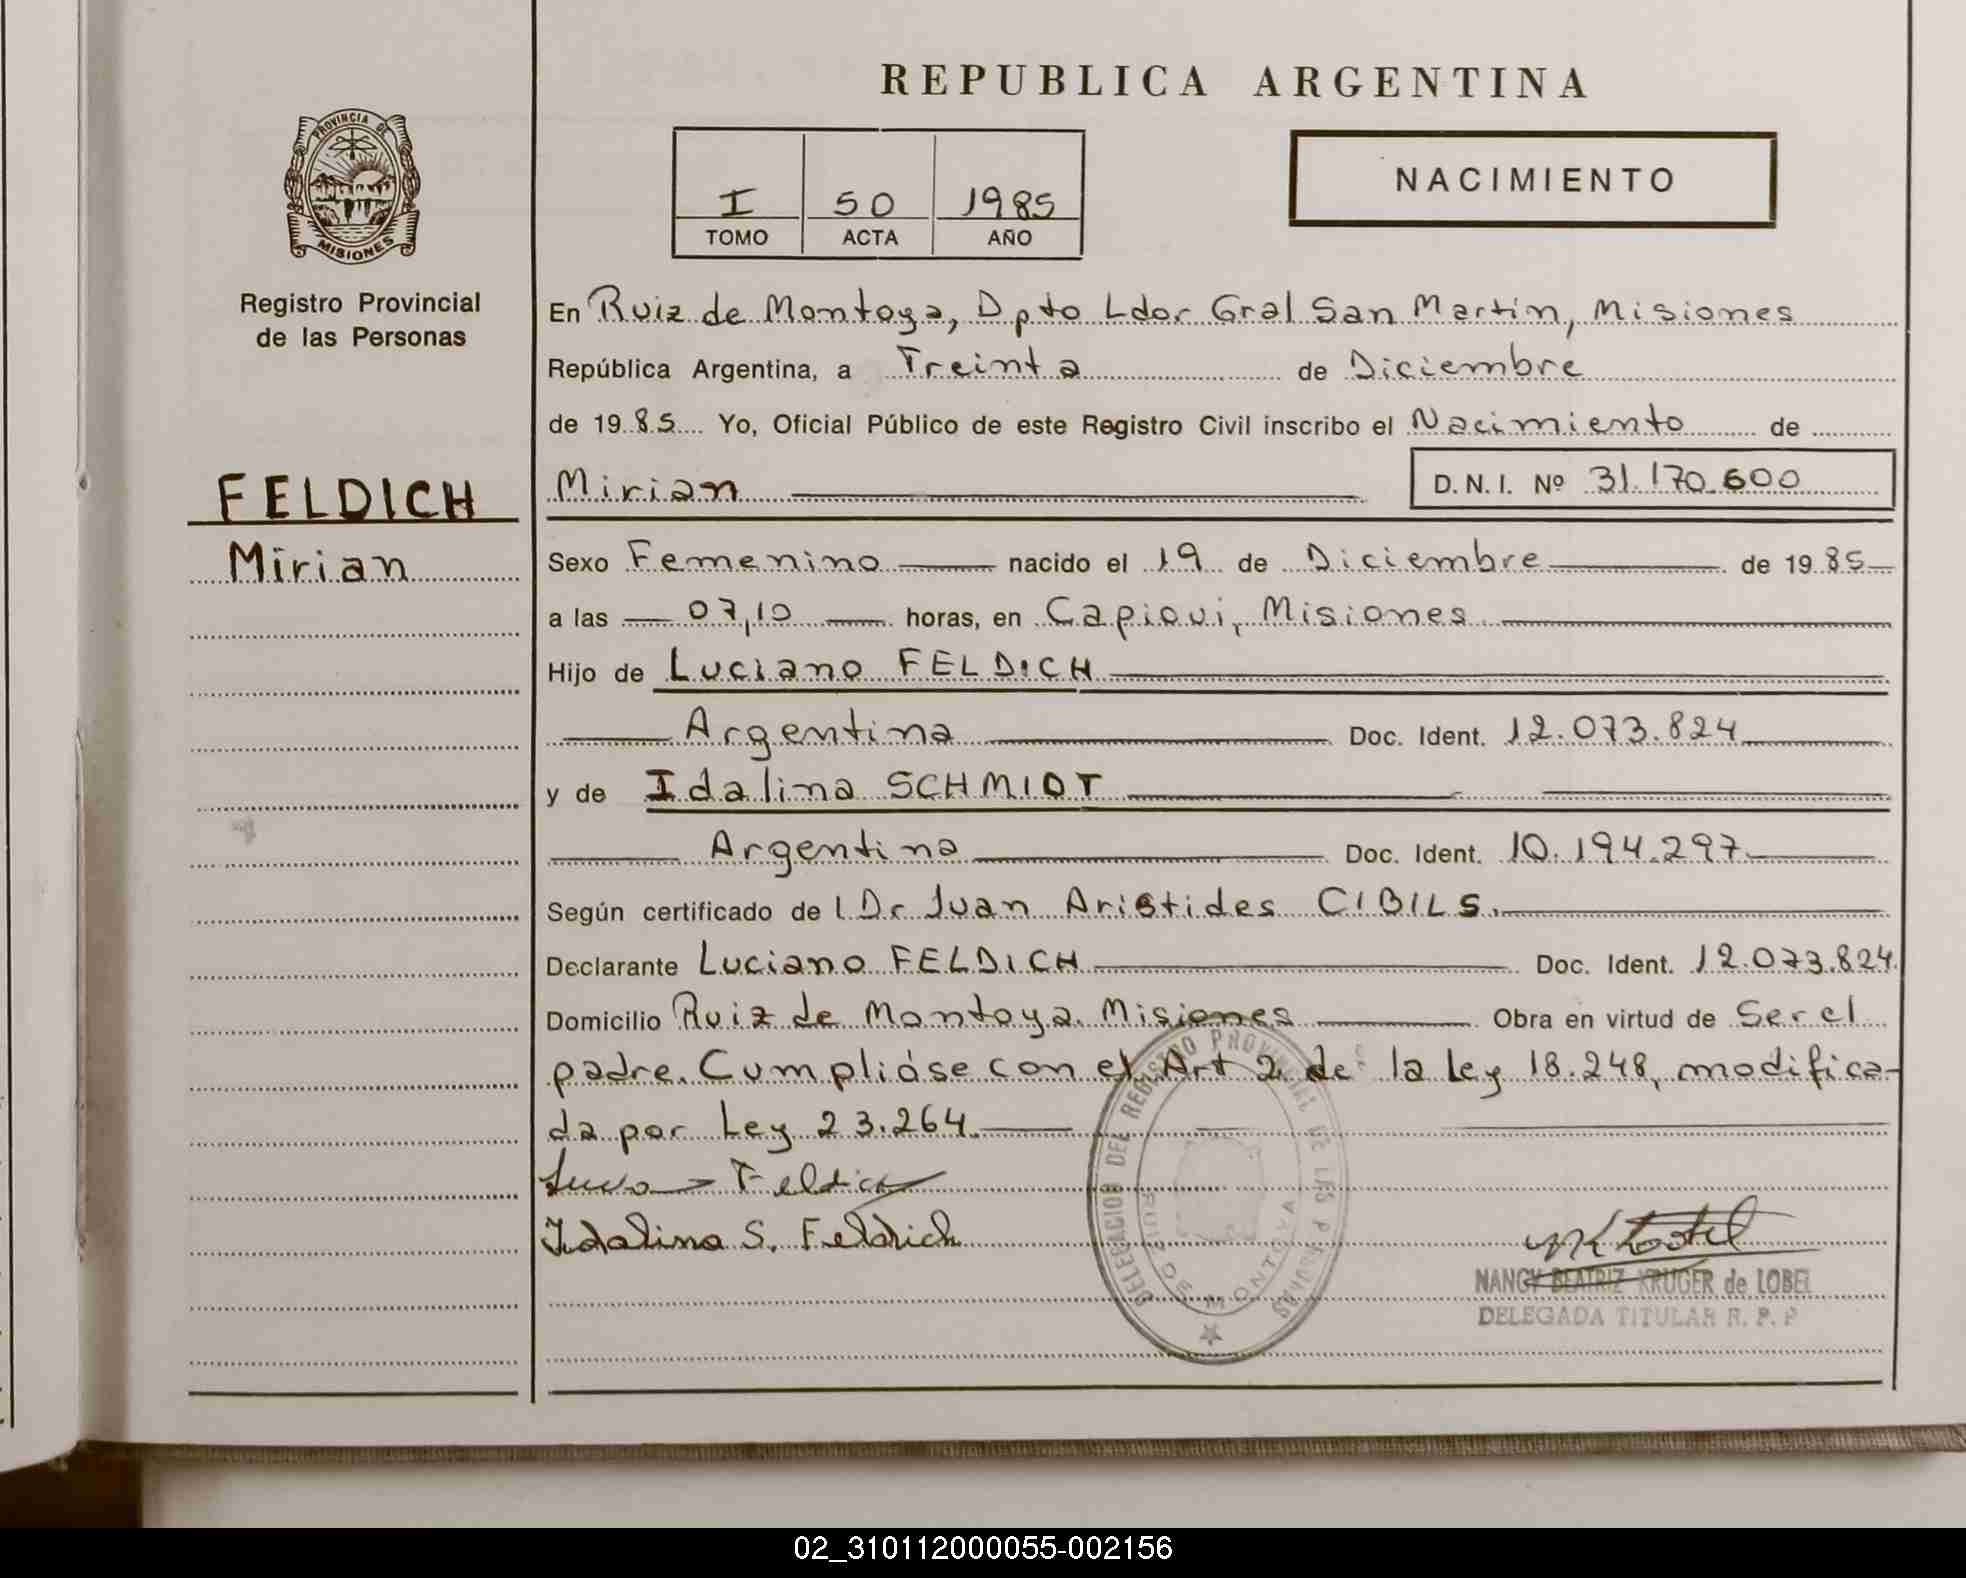 REPUBLICA ARGENTINA
PROVINCIA DE
MISIONES
Registro Provincial
de las Personas
I 50 1985
TOMO ACTA AÑO
NACIMIENTO
FELDICH
Mirian
En Ruiz de Montoya, Dpto Ldor Gral San Martin, Misiones
República Argentina, a Treinta de Diciembre
de 1985 Yo, Oficial Público de este Registro Civil inscribo el Nacimiento de
Mirian D.N.I. Nº 31.170.600
Sexo Femenino nacido el 19 de Diciembre de 1985
a las 07,10 horas, en Capiovi, Misiones
Hijo de Luciano FELDICH
Argentina Doc. Ident. 12.073.824
y de Idalina SCHMIDT
Argentina Doc. Ident. 10.194.297
Según certificado de l Dr Juan Aristides CIBILS.
Declarante Luciano FELDICH Doc. Ident. 12.073.824
Domicilio Ruiz de Montoya. Misiones Obra en virtud de Ser el
padre. Cumplióse con el Art 2 de la Ley 18.248, modifica-
da por Ley 23.264.
Feldich
Idalina S. Feldrich
DELEGACION DEL REGISTRO PROVINCIAL DE LAS PERSONAS
RUIZ DE MONTOYA
NANCY BEATRIZ KRUGER de LOBEL
DELEGADA TITULAR R. P. P
02_310112000055-002156